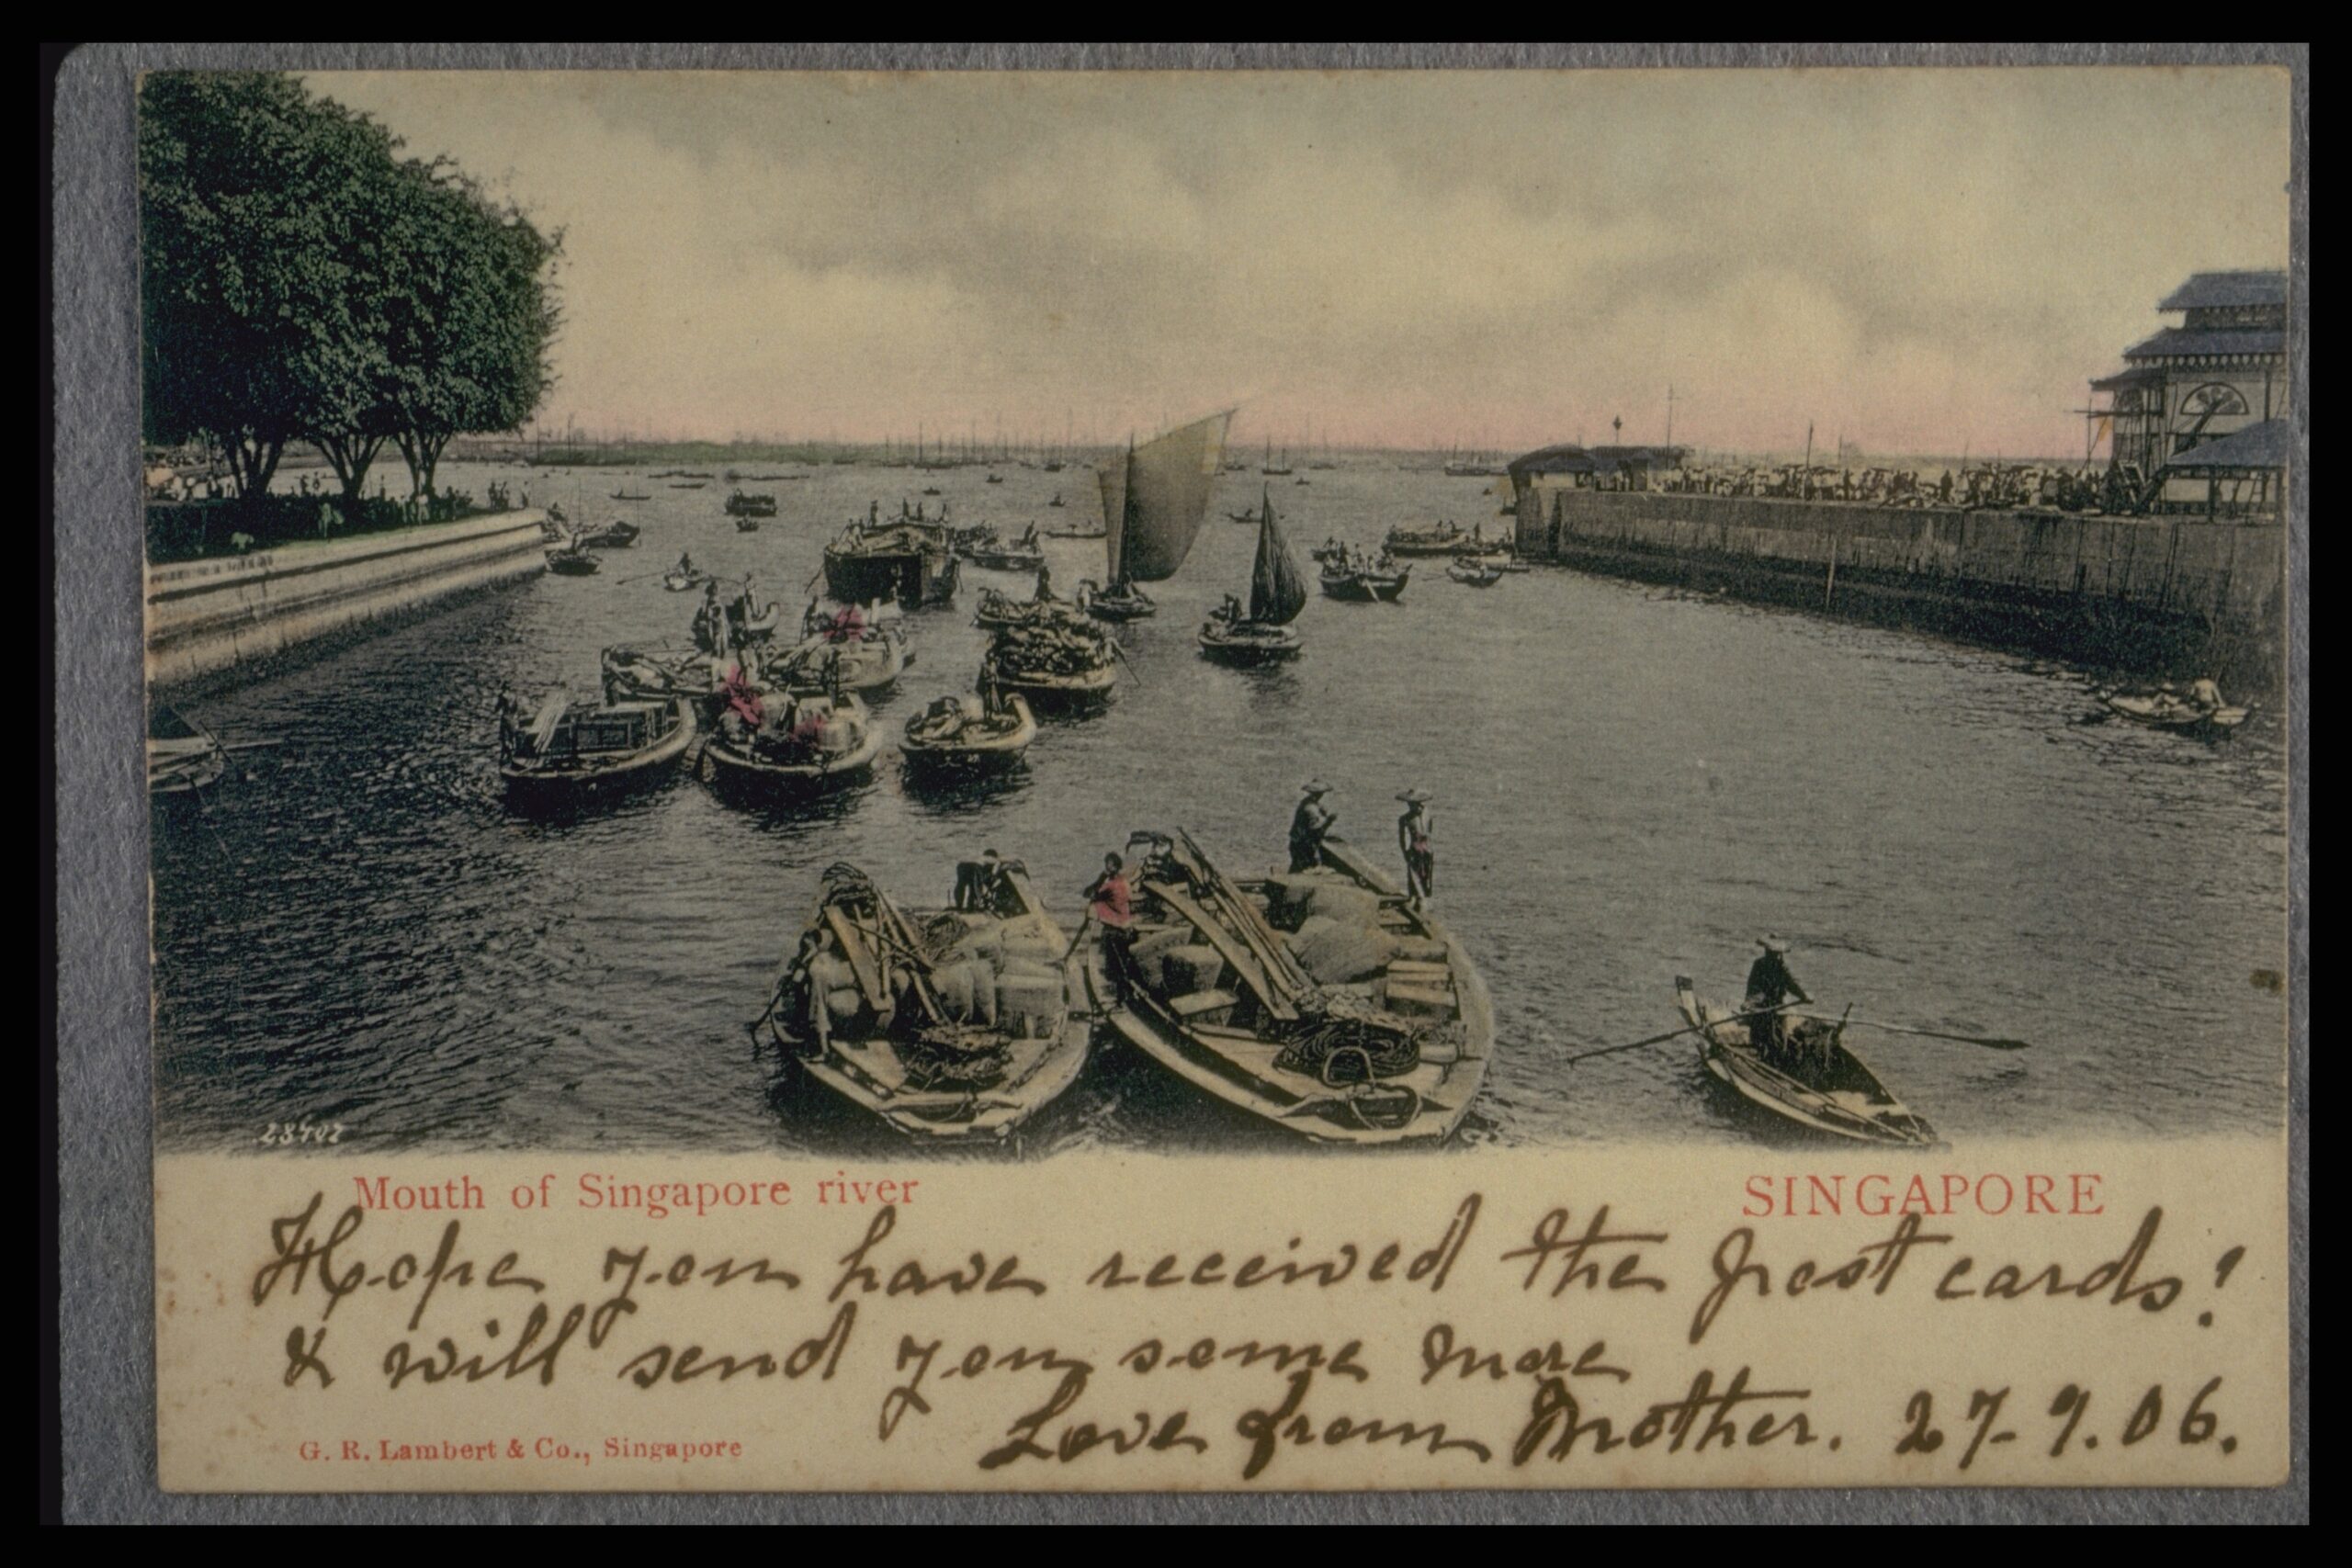 28402
Mouth of Singapore river
SINGAPORE
Hope you have received the post cards!
& will send you some more
Love from Mother. 27-9.06.
G. R. Lambert & Co., Singapore